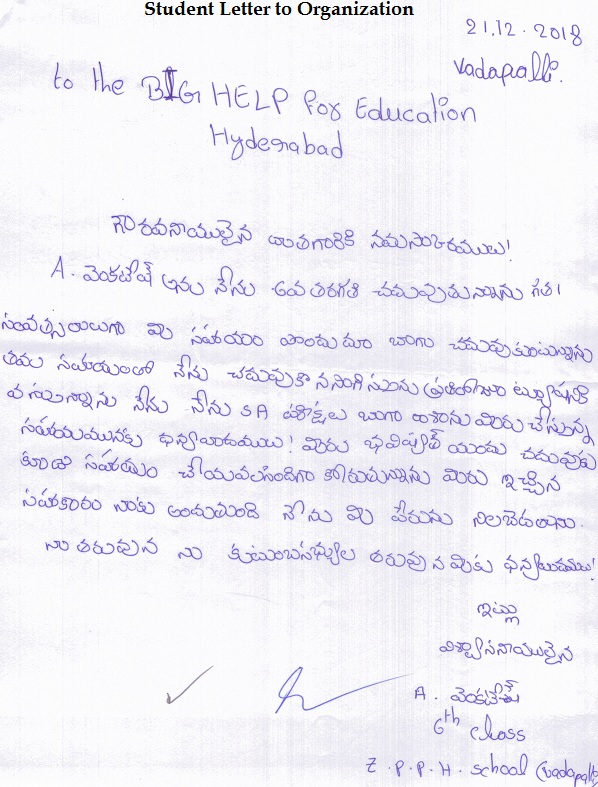 Student Letter to Organization
21.12.2018
Vadapalli.
to the BIG HELP For Education
Hyderabad
గౌరవనీయులైన దాతగారికి నమస్కారములు!
A. వెంకటేష్ అను నేను 6వ తరగతి చదువుచున్నాను గత
సంవత్సరాలుగా మీ సహాయం పొందుచూ బాగా చదువుకుంటున్నాను
తమ సహాయంతో నేను చదువుకొనసాగిస్తూను ప్రతిరోజూ ట్యూషన్‌కి
నేను నేను SA పరీక్షలు బాగా రాశాను మీరు చేస్తున్న
సహాయమునకు ధన్యవాదములు! మీరు భవిష్యత్ యందు చదువుకు
కూడా సహాయం చేయవలసిందిగా కోరుచున్నాను మీరు ఇచ్చిన
సహకారం నాకు అందుతుంది నేను మీ పేరును నిలబెడతాను.
నా తరుపున నా కుటుంబసభ్యుల తరుపున మీకు ధన్యవాదములు!
ఇట్లు
విశ్వాసనీయులైన
A. వెంకటేష్
6th class
Z.P.P.H. school (vadapalli)